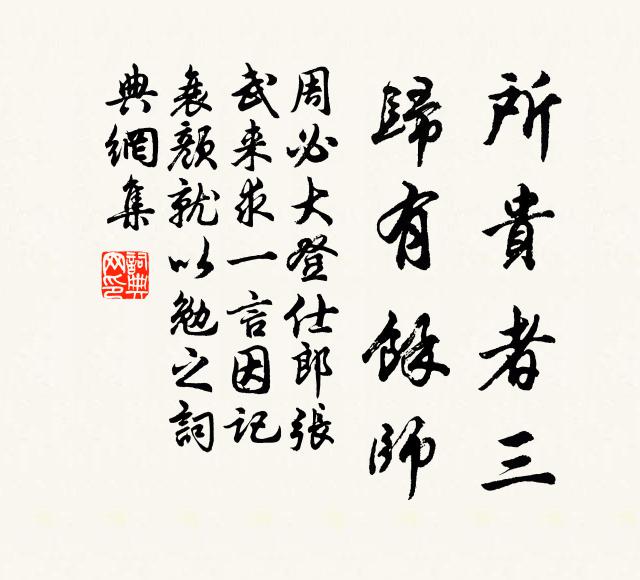 所貴者三
歸有餘師
周必大登仕郎張
武来求一言因記
衰顏就以勉之詞
典網集
詞典
网印